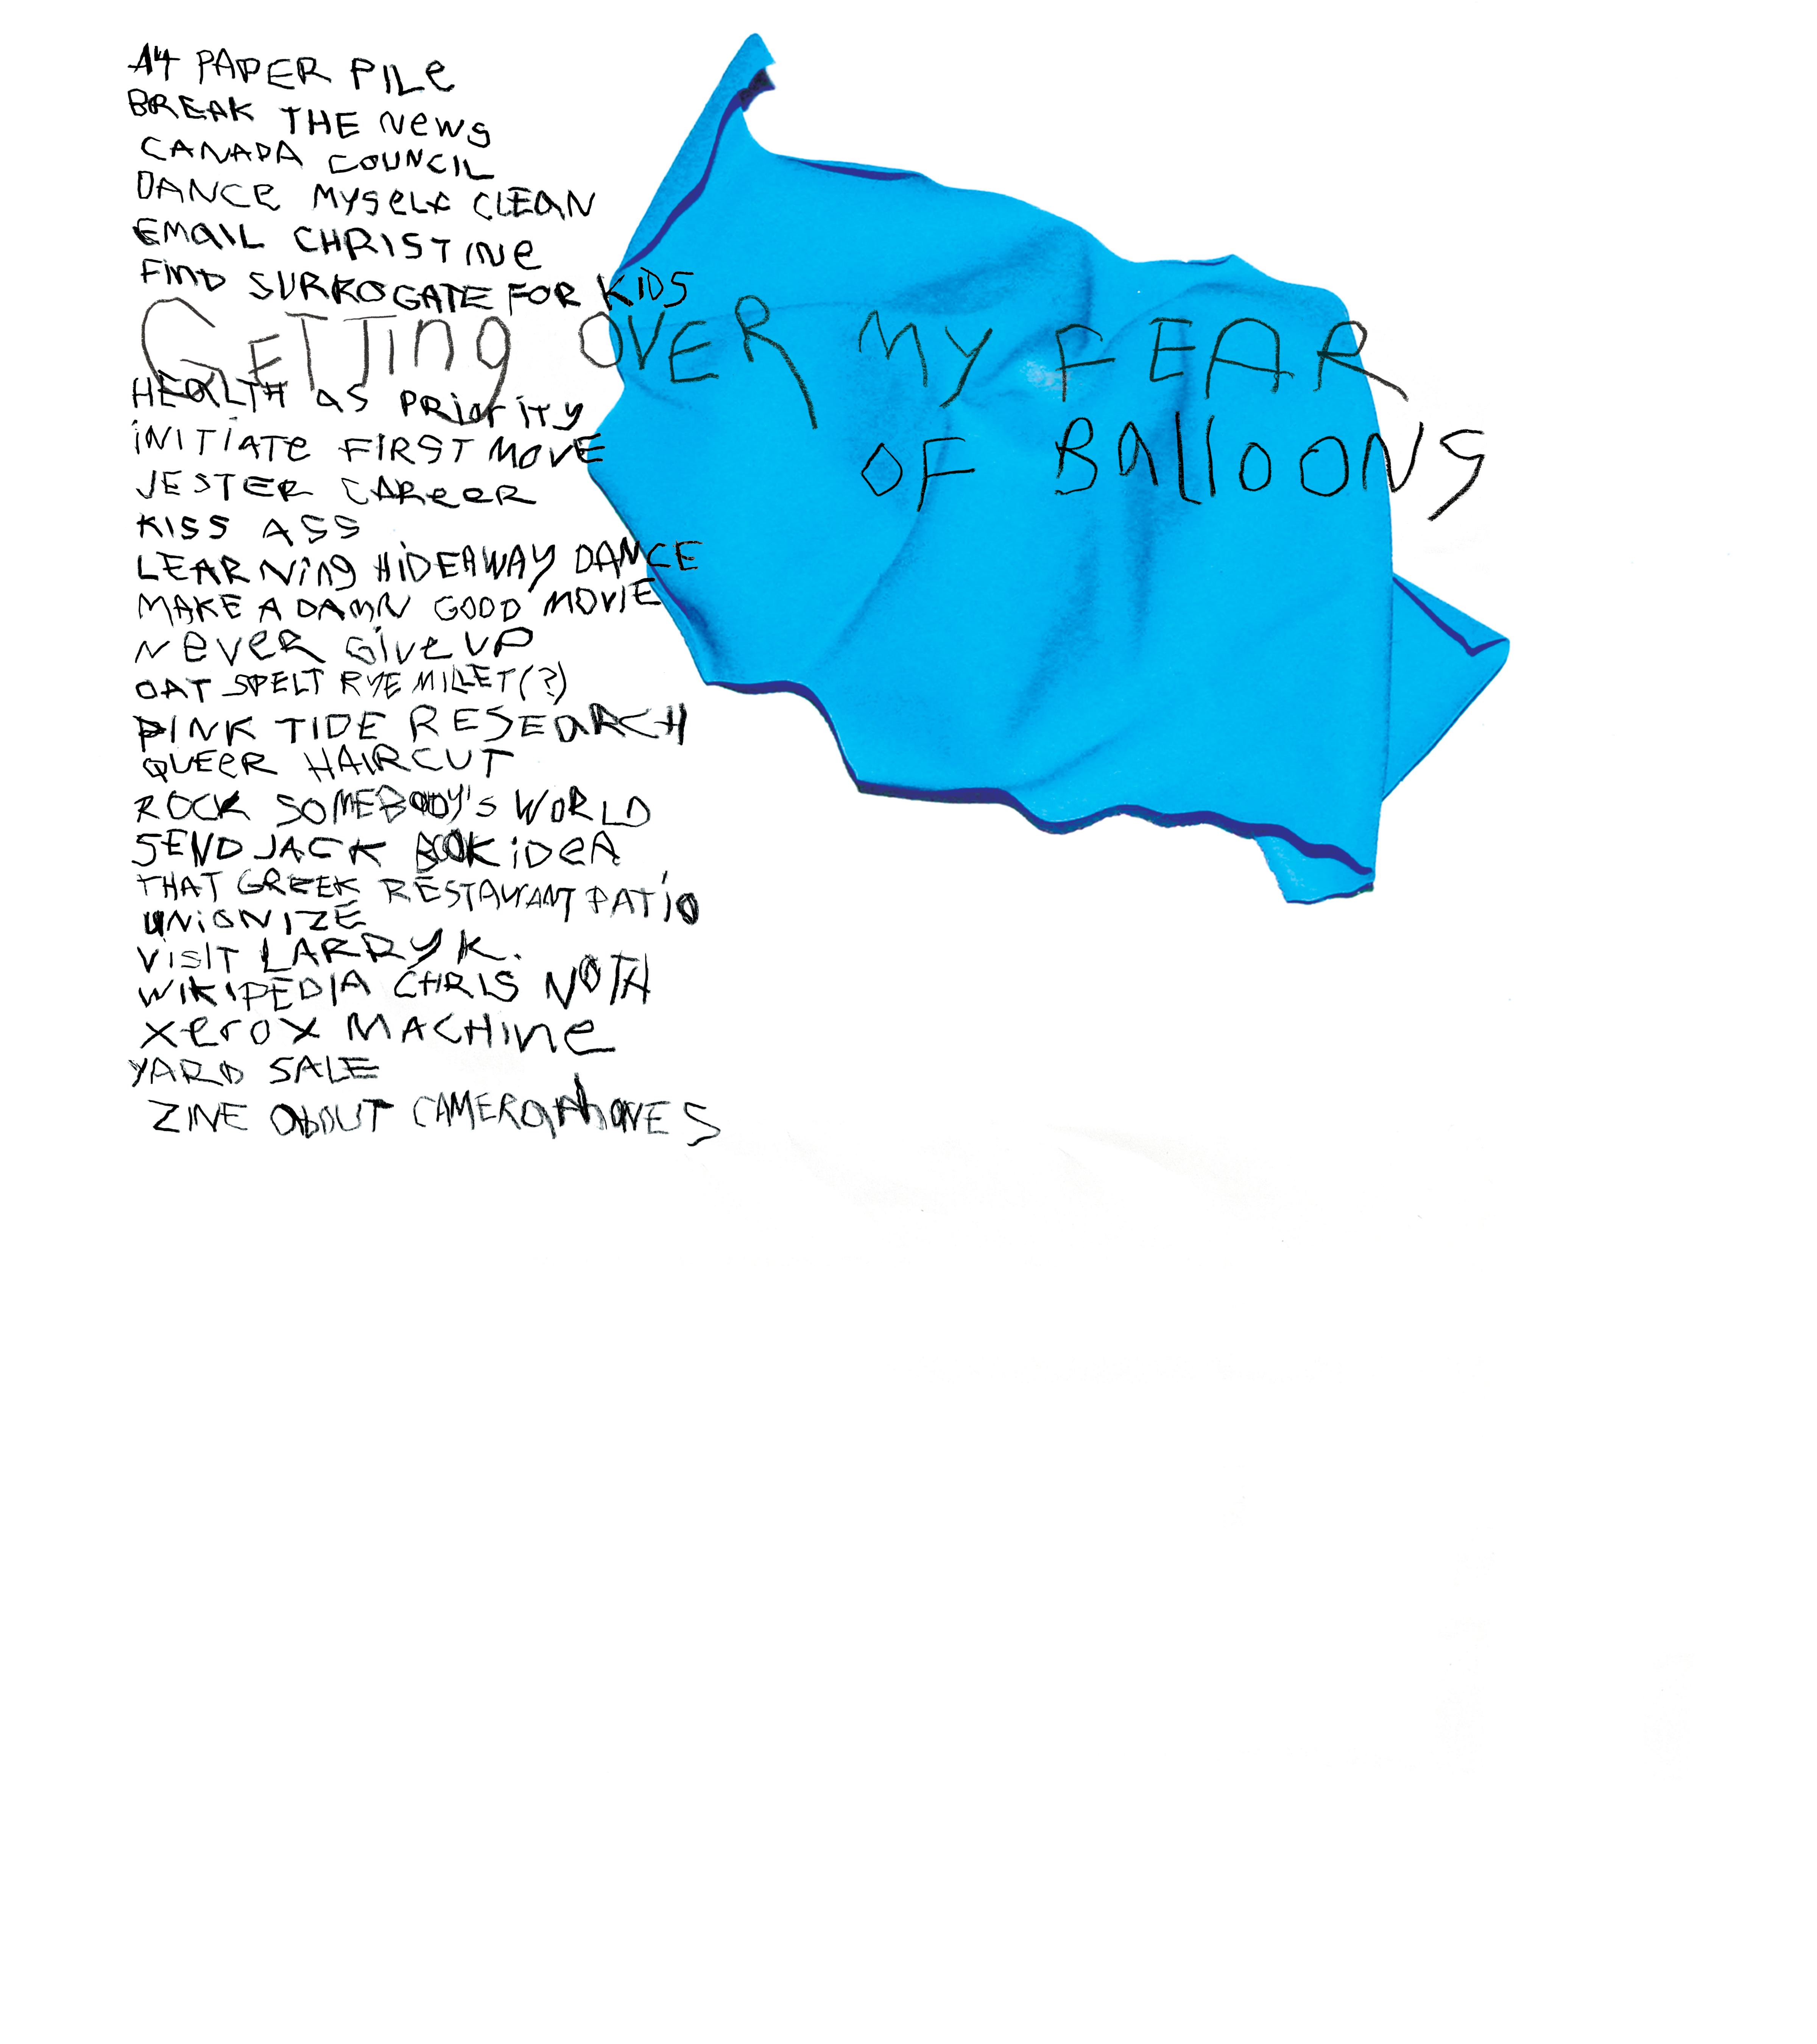 A4 PAPER PILe
BREAK THE News
CANADA COUNCIL
DANCE MYSeLF CLEAN
EMaIL CHRISTINe
FiND SURROGATE FOR KiDS
GETTing OVER MY FEAR
OF BallOONS
HEaLTH aS PRiorITY
iNITiATe FIRST MOVE
JESTER CAReeR
KISS ASS
LEARNing HiDEAWAY DANCE
MAKE A DAMN GOOD MOVIE
NeVeR GiVe UP
OAT SPELT RYE MILLET(?)
PINK TIDE RESEaRCH
QUEeR HAIRCUT
ROCK SOMEBODY'S WORLD
SEND JACK BOOK iDeA
THAT GREEK RESTAURANT PATiO
UNiONIZE
ViSIT LARRY K.
WIKIPEDIA CHRIS NOTH
XeroX MACHINe
YARD SALE
ZINE aboUT CAMERaPhONES